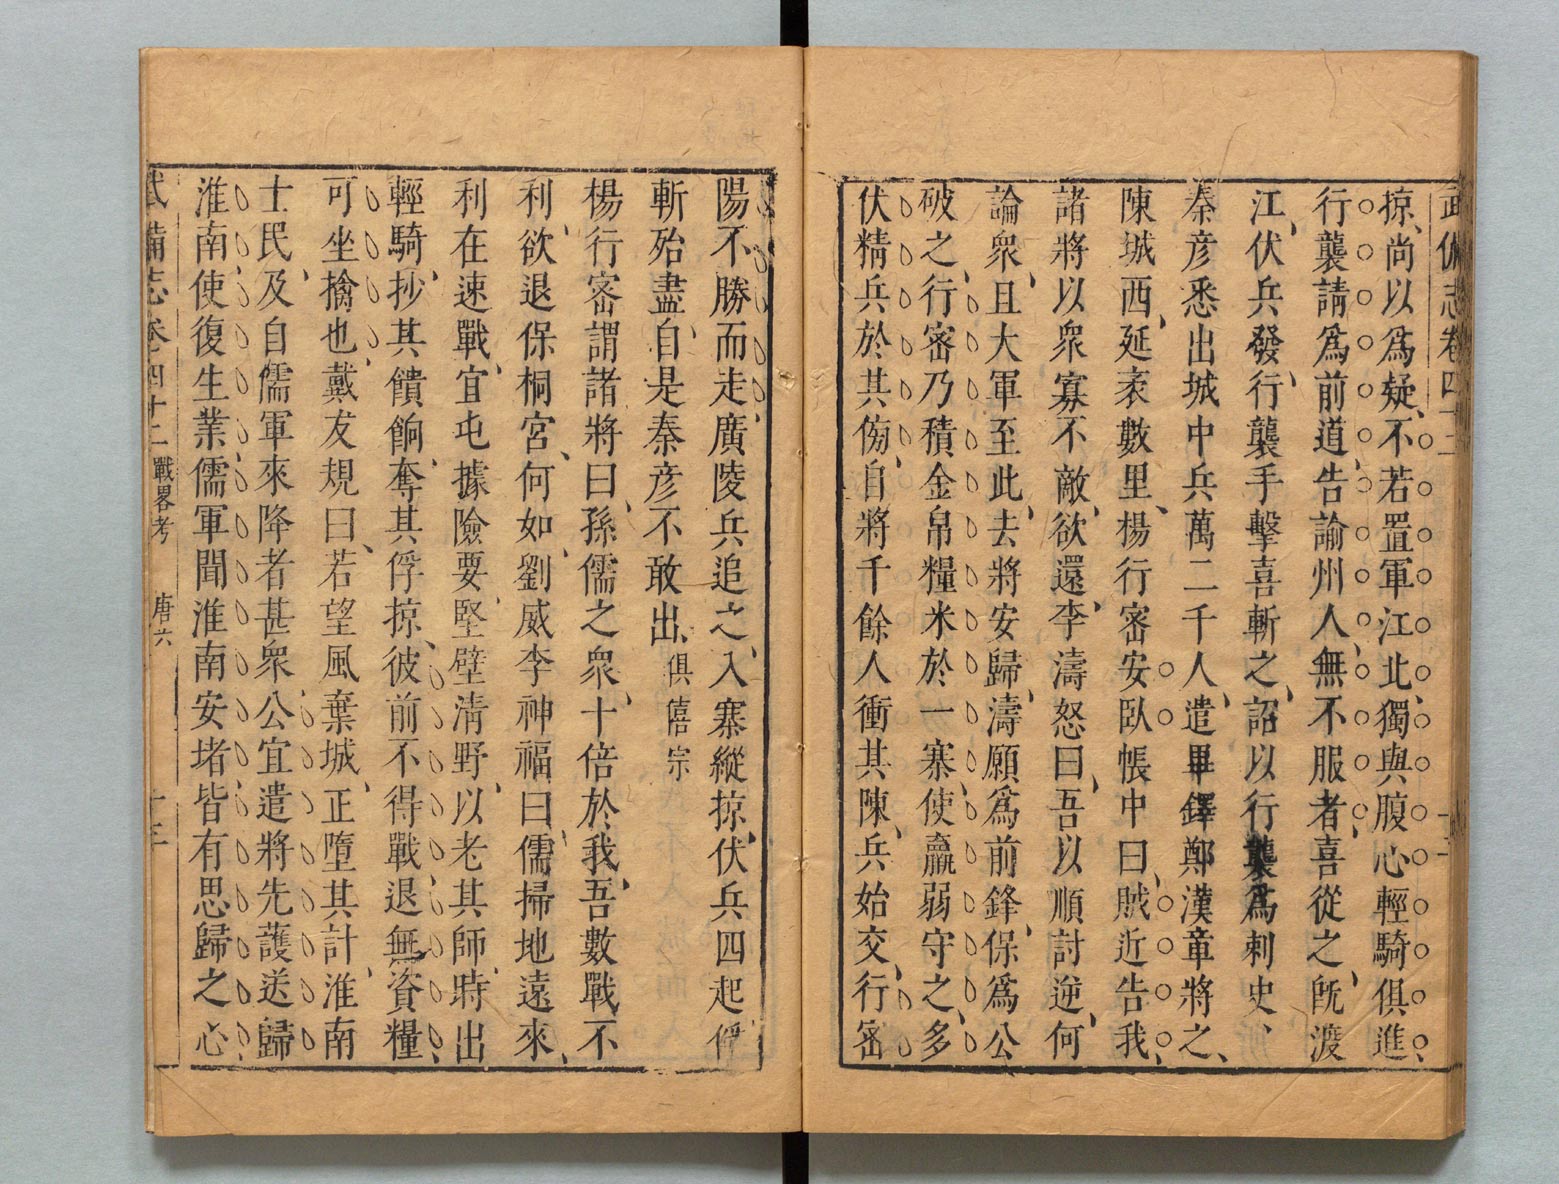 武備志卷四十二
掠尚以爲疑不若置軍江北獨與腹心輕騎俱進
行襲請爲前道告諭州人無不服者喜從之旣渡
江伏兵發行襲手擊喜斬之詔以行襲爲刺史
秦彦悉出城中兵萬二千人遣畢鐸鄭漢章將之
陳城西延袤數里楊行密安臥帳中曰賊近告我
諸將以眾寡不敵欲還李濤怒曰吾以順討逆何
論眾且大軍至此去將安歸濤願爲前鋒保爲公
破之行密乃積金帛糧米於一寨使羸弱守之多
伏精兵於其傍自將千餘人衝其陳兵始交行密
陽不勝而走廣陵兵追之入寨縱掠伏兵四起俘
斬殆盡自是秦彦不敢出俱僖宗
楊行密謂諸將曰孫儒之眾十倍於我吾數戰不
利欲退保桐宮何如劉威李神福曰儒掃地遠來
利在速戰宜屯據險要堅壁淸野以老其師時出
輕騎抄其饋餉奪其俘掠彼前不得戰退無資糧
可坐擒也戴友規曰若望風棄城正墮其計淮南
士民及自儒軍來降者甚眾公宜遣將先護送歸
淮南使復生業儒軍聞淮南安堵皆有思歸之心
武備志卷四十二 戰畧考 唐六 十三